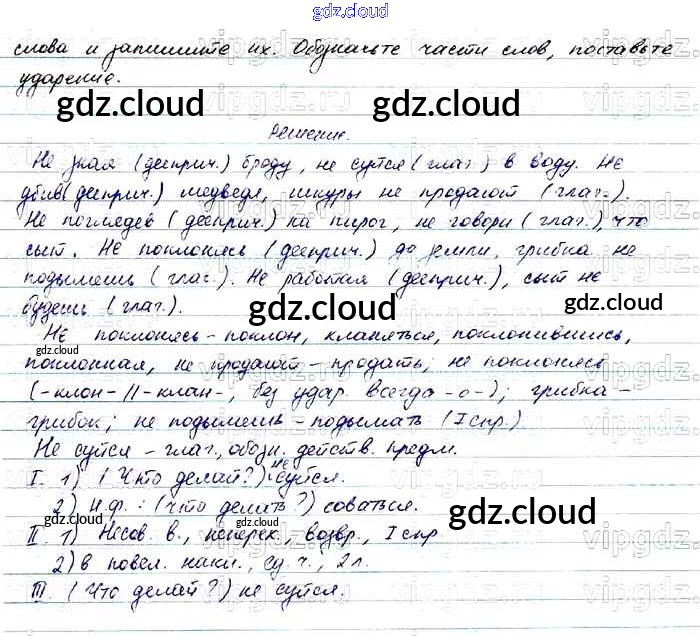 gdz.cloud
слова и запишите их. Обозначьте части слов, поставьте
ударение.
gdz.cloud gdz.cloud
Решение.
Не зная (дееприч.) броду, не суйся (глаг.) в воду. Не
убив (дееприч.) медведя, шкуры не продают (глаг.).
Не поглядев (дееприч.) на пирог, не говори (глаг.), что
сыт. Не поклонясь (дееприч.) до земли, грибка не
подымешь (глаг.). Не работая (дееприч.), сыт не
будешь (глаг.).
gdz.cloud gdz.cloud
Не поклонясь - поклон, кланяться, поклонившись,
gdz.cloud
поклонная, не продают - продать; не поклонясь
(-клон-//-клан-, без удар. всегда -о-); грибка -
грибок; не подымешь - подымать (I спр.)
Не суйся - глаг., обозн. действ. предм.
I. 1) (Что делай?) не суйся.
2) Н.ф.: (что делать?) соваться.
gdz.cloud gdz.cloud
II 1) Несов. в., неперех., возвр., I спр
2) в повел. накл., ед. ч., 2 л.
III. (Что делай?) не суйся.